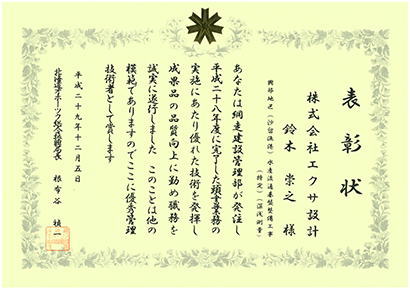 表彰状
株式会社エクサ設計
鈴木崇之様
興部地区(沙留漁港)水産流通基盤整備工事
(特定)(深浅測量)
あなたは網走建設管理部が発注し
平成二十八年度に完了した頭書業務の
実施にあたり優れた技術を発揮し
成果品の品質向上に勤め職務を
誠実に遂行しました このことは他の
模範でありますのでここに優秀管理
技術者として賞します
平成二十九年十二月五日
北海道オホーツク総合振興局長 根布谷禎一